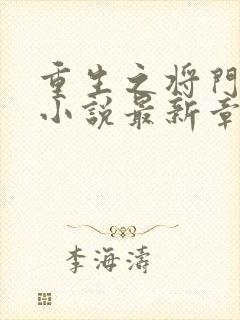 重生之将門
小说最新章
李海濤